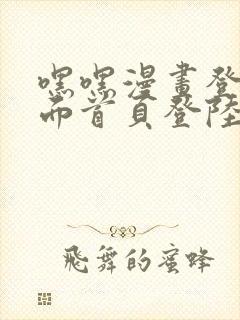 嘿嘿漫畫登
面首頁登陸
飛舞的蜜蜂